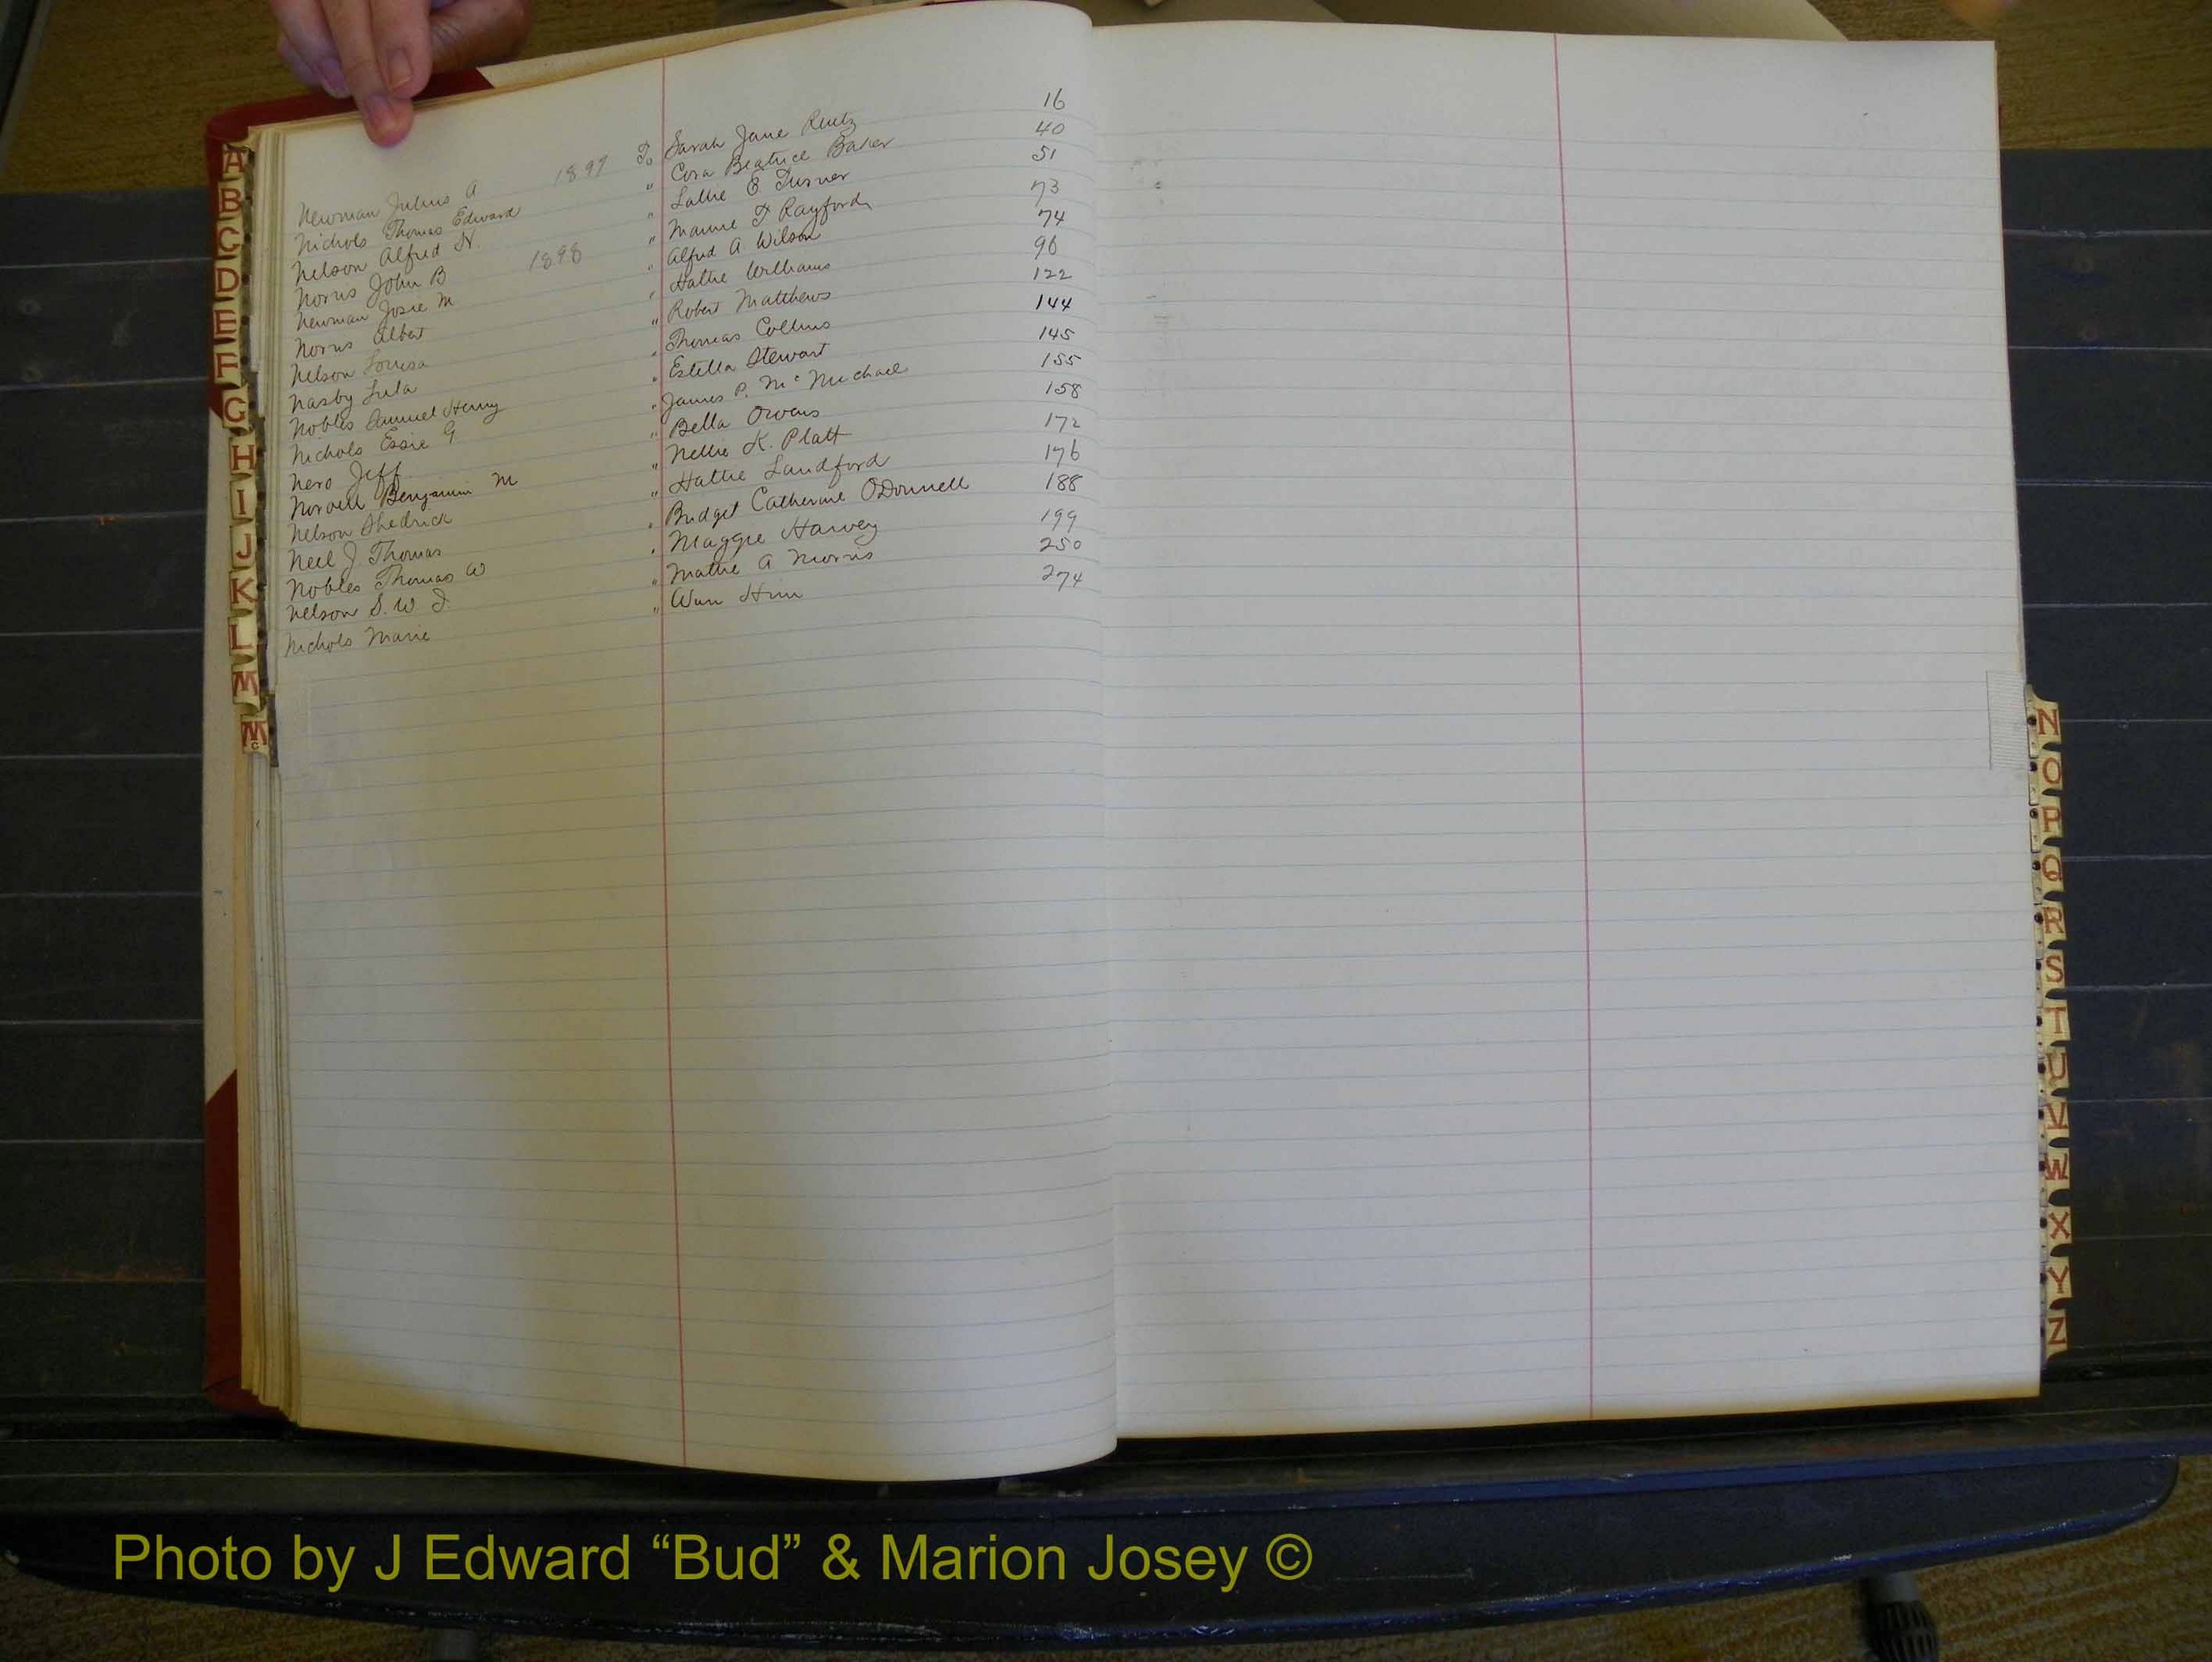 Newman Julius A 1897 To Sarah Jane Rentz 16
Nichols Thomas Edward " Cora Beatrice Baker 40
Nelson Alfred N. " Lallie E Turner 51
Norris John B 1898 " Mamie F Rayford 73
Newman Josie M " Alfred A. Wilson 74
Norris Albert " Hattie Williams 96
Nelson Louisa " Robert Matthews 122
Nasby Lula " Thomas Collins 144
Nobles Samuel Henry " Estella Stewart 145
Nichols Essie G. " James P. McMichael 155
Nero Jeff " Bella Owens 158
Norvell Benjamin M " Nellie K. Platt 172
Nelson Shedrick " Hattie Landford 176
Neel J Thomas " Bridget Catherine ODonnell 188
Nobles Thomas W " Maggie Harvey 199
Nelson S. W. J. " Mattie A Morris 250
Nichols Marie " Wun Him 274
A
B
C
D
E
F
G
H
I
J
K
L
M
Mc
N
O
P
Q
R
S
T
U
V
W
X
Y
Z
Photo by J Edward “Bud” & Marion Josey ©